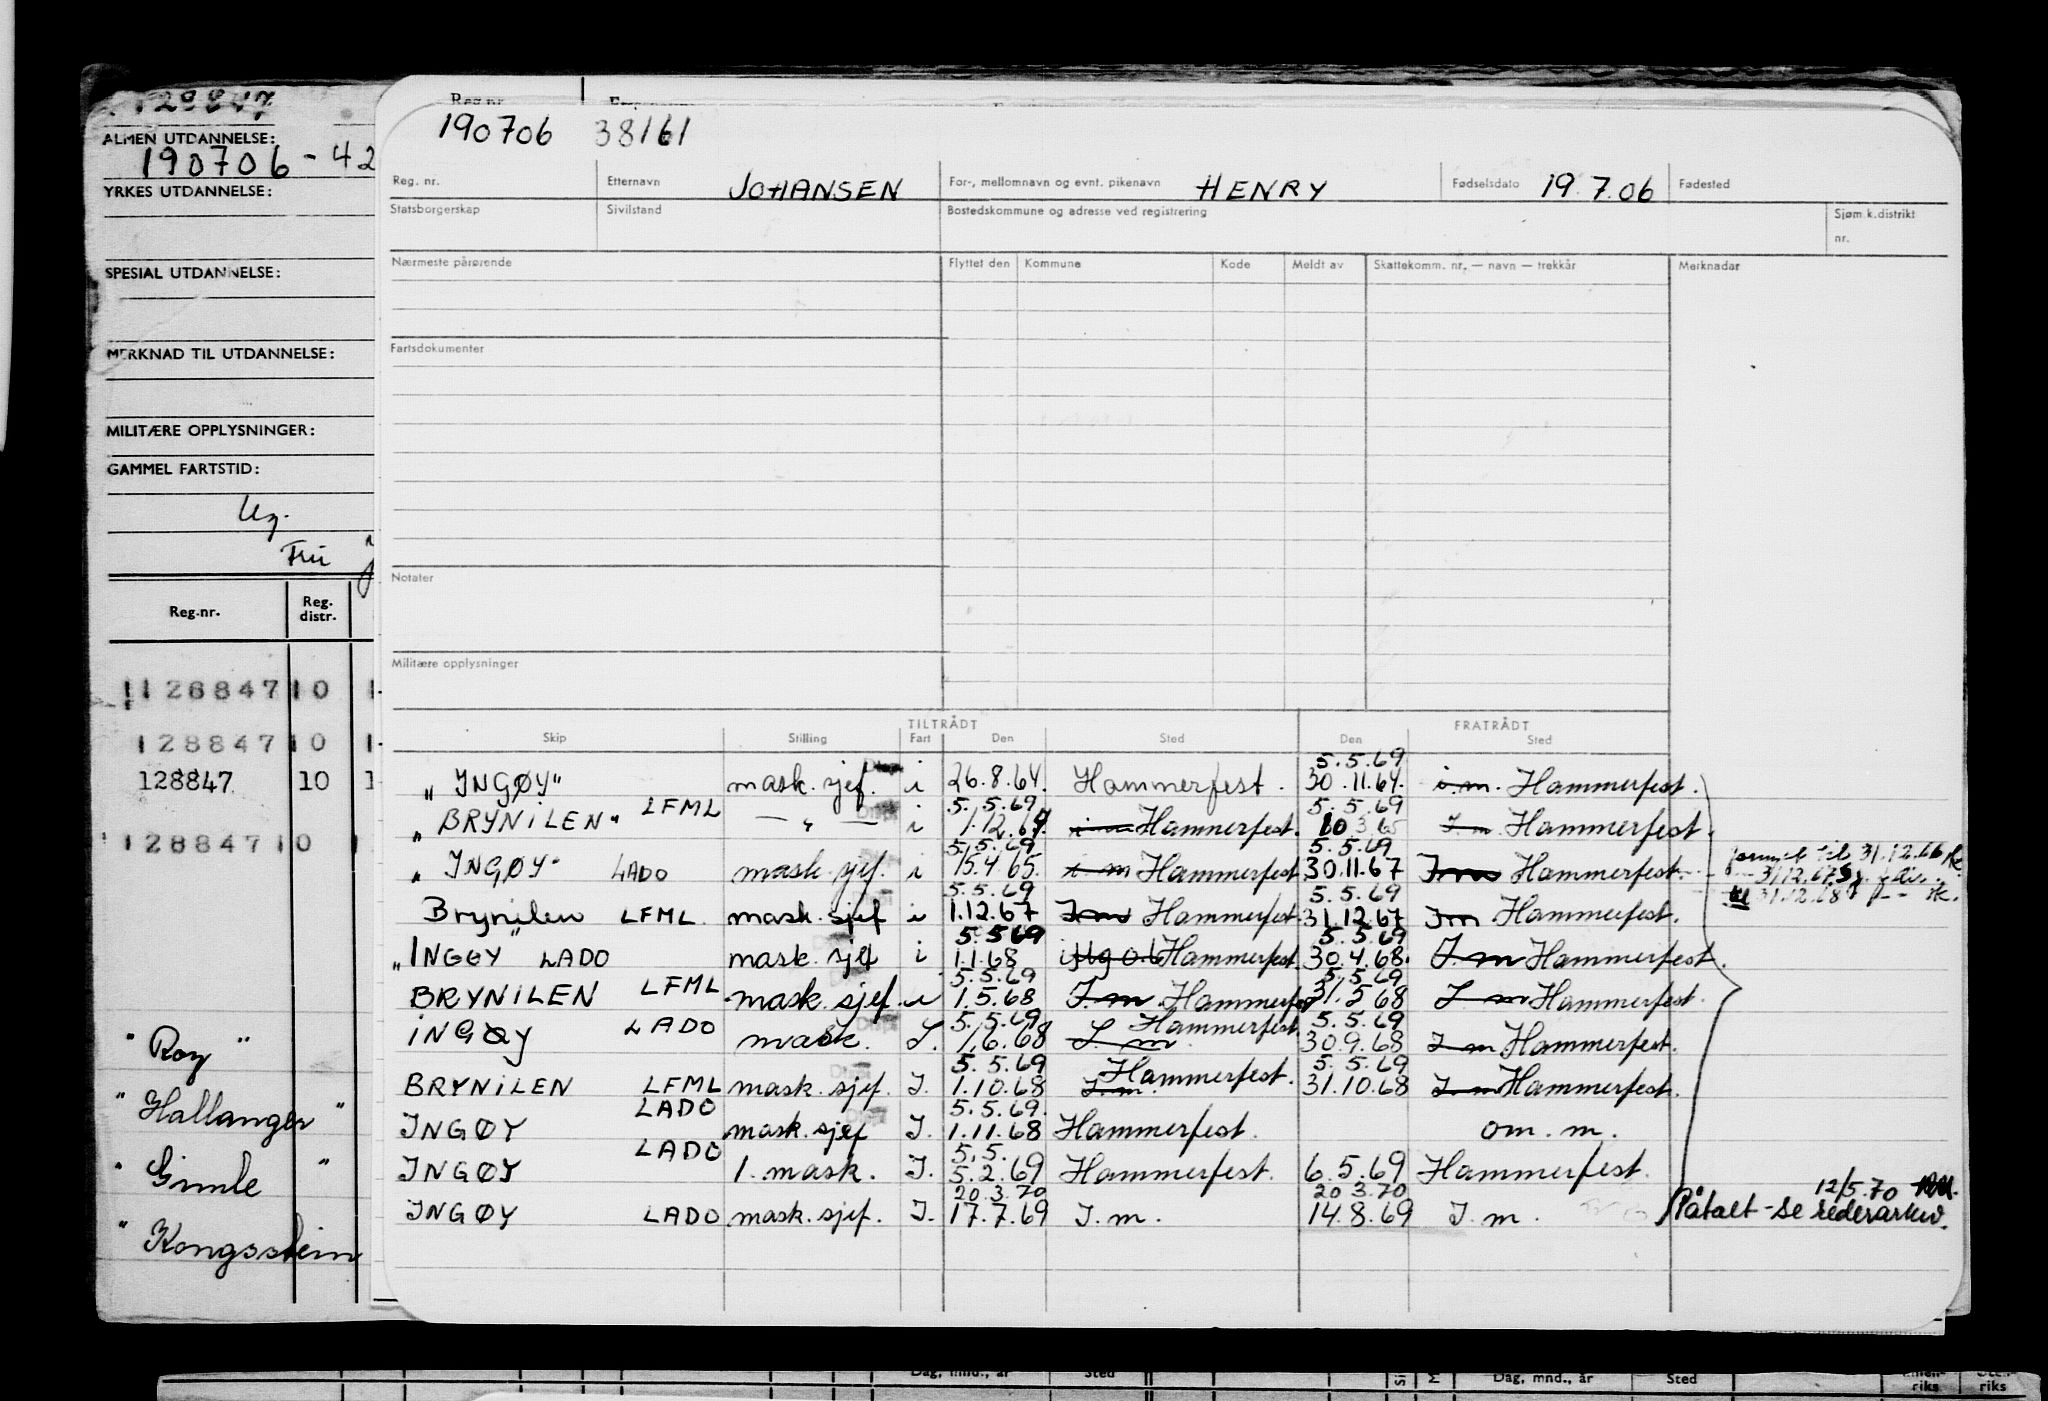 ALMEN UTDANNELSE:
190706-42
YRKES UTDANNELSE:
SPESIAL UTDANNELSE:
MERKNAD TIL UTDANNELSE:
MILITÆRE OPPLYSNINGER:
GAMMEL FARTSTID:
Reg.-nr. Reg. distr.
128847 10
128847 10
128847 10
" Roy "
" Hallanger "
" Gimle "
" Kongsstein
Reg.nr.
190706 38161
Reg. nr. Etternavn JOHANSEN For-, mellomnavn og evnt. pikenavn HENRY Fødselsdato 19.7.06 Fødested
Statsborgerskap Sivilstand Bostedskommune og adresse ved registrering Sjøm.k.distrikt
nr.
Nærmeste pårørende Flyttet den Kommune Kode Meldt av Skattekomm. nr. — navn — trekkår Merknadar
Fartsdokumenter
Notater
Militære opplysninger
TILTRÅDT FRATRÅDT
Skip Stilling Fart Den Sted Den Sted
5.5.69
"INGØY" mask. sjef. i 26.8.64. Hammerfest. 30.11.64. i.m. Hammerfest.
5.5.69 5.5.69
"BRYNILEN" LFML — " — i 1.12.64. Hammerfest. 10 3 65 I m. Hammerfest.
5.5.69 5.5.69
"INGØY" LADO mask. sjef. i 15.4.65. i m Hammerfest. 30.11.67 Im Hammerfest.
5.5.69 5.5.69
Brynilen LFML mask. sjef i 1.12.67 Im Hammerfest. 31.12.67 Im Hammerfest.
5.5.69 5.5.69
"INGØY" LADO mask. sjef i 1.1.68 Hammerfest. 30.4.68. I m Hammerfest.
5.5.69 5.5.69
BRYNILEN LFML mask. sjef. i 1.5.68 I m. Hammerfest 31.5 68 I m Hammerfest.
5.5.69 5.5.69
INGØY LADO mask. I. 1.6.68 I m Hammerfest. 30.9.68 I m Hammerfest.
5.5.69 5.5.69
BRYNILEN LFML mask. sjef. I. 1.10.68 I.m. Hammerfest. 31.10.68 I m Hammerfest.
5.5.69.
INGØY LADO mask. sjef I. 1.11.68 Hammerfest. om. m.
5.5.
INGØY LADO 1. mask. I. 5.2.69 Hammerfest. 6.5.69 Hammerfest.
20.3.70 20 3.70
INGØY LADO mask. sjef. I. 17.7.69 I. m. 14.8.69 I. m.
til 31.12.66
31.12.67
31.12.68
12/5.70
Påtalt - se rederarkiv.
Dag, mnd., år Sted Dag, mnd., år Sted
riks riks